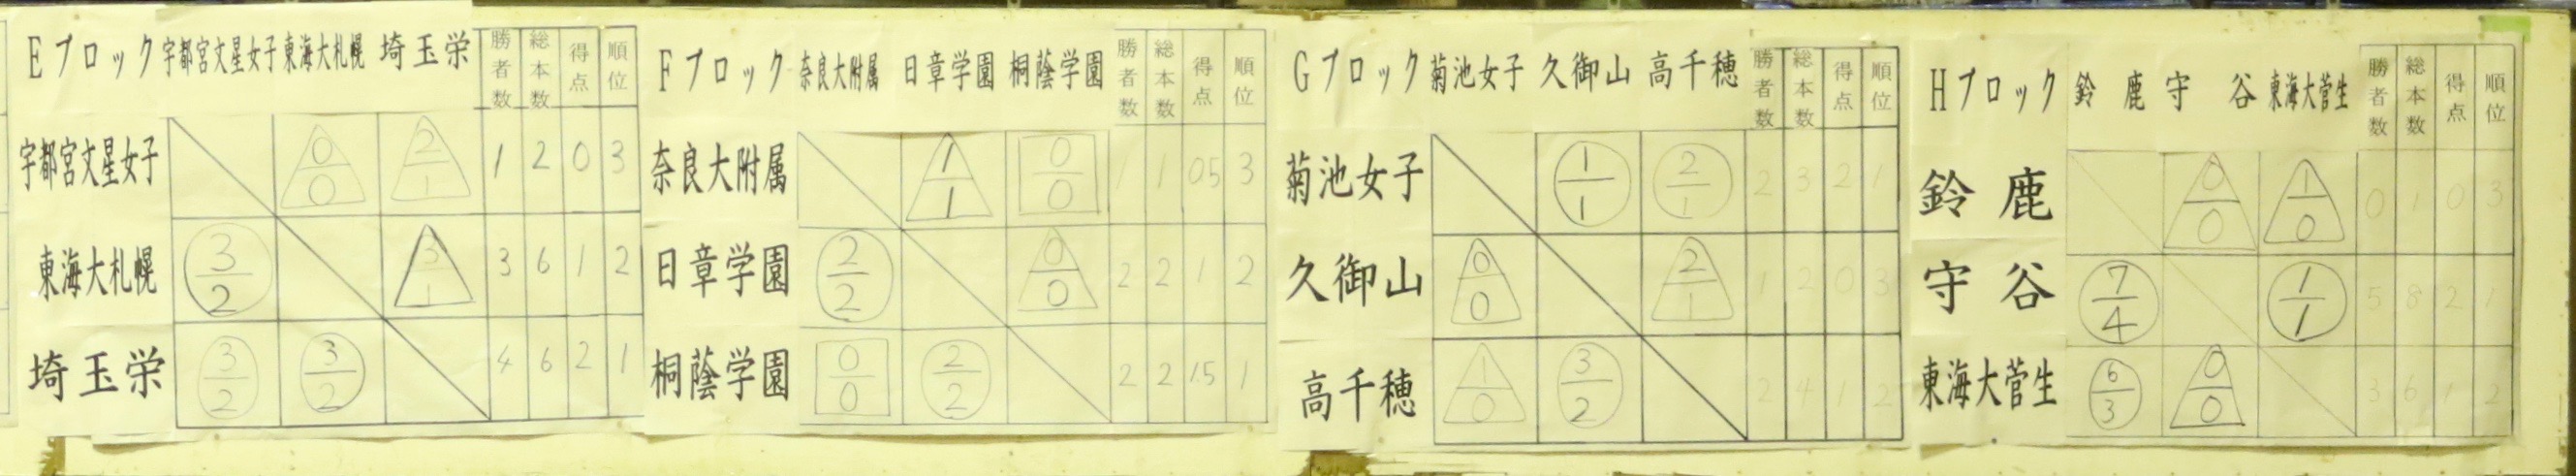 Eブロック 宇都宮文星女子 東海大札幌 埼玉栄 勝者数 総本数 得点 順位
宇都宮文星女子 0/0 2/1 1 2 0 3
東海大札幌 3/2 3/1 3 6 1 2
埼玉栄 3/2 3/2 4 6 2 1
Fブロック 奈良大附属 日章学園 桐蔭学園 勝者数 総本数 得点 順位
奈良大附属 1/1 0/0 1 1 0.5 3
日章学園 2/2 0/0 2 2 1 2
桐蔭学園 0/0 2/2 2 2 1.5 1
Gブロック 菊池女子 久御山 高千穂 勝者数 総本数 得点 順位
菊池女子 1/1 2/1 2 3 2 1
久御山 0/0 2/1 1 2 0 3
高千穂 1/0 3/2 2 4 1 2
Hブロック 鈴鹿 守谷 東海大菅生 勝者数 総本数 得点 順位
鈴鹿 0/0 1/0 0 1 0 3
守谷 7/4 1/1 5 8 2 1
東海大菅生 6/3 0/0 3 6 1 2